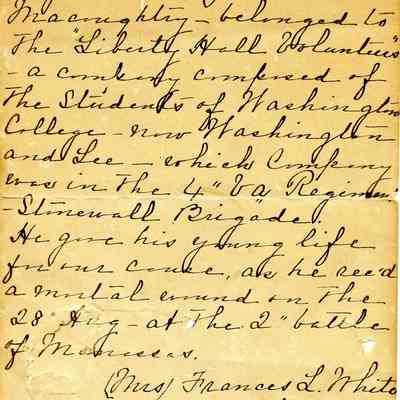 Macoughtry - belonged to
The "Liberty Hall Volunteers"
- a company composed of
The Students of Washington
College - now Washington
and Lee - which Company
was in the 4" Va Regiment
- Stonewall Brigade.
He gave his young life
for our cause, as he rec'd
a mortal wound on the
28 Aug - at the 2" battle
of Manassas.
(Mrs) Frances L. White